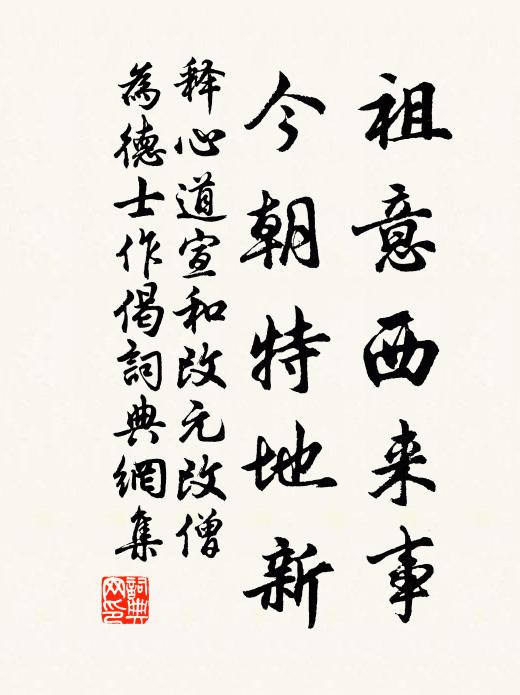 祖意西来事
今朝特地新
释心道宣和改元改僧
為德士作偈詞典網集
詞典网印